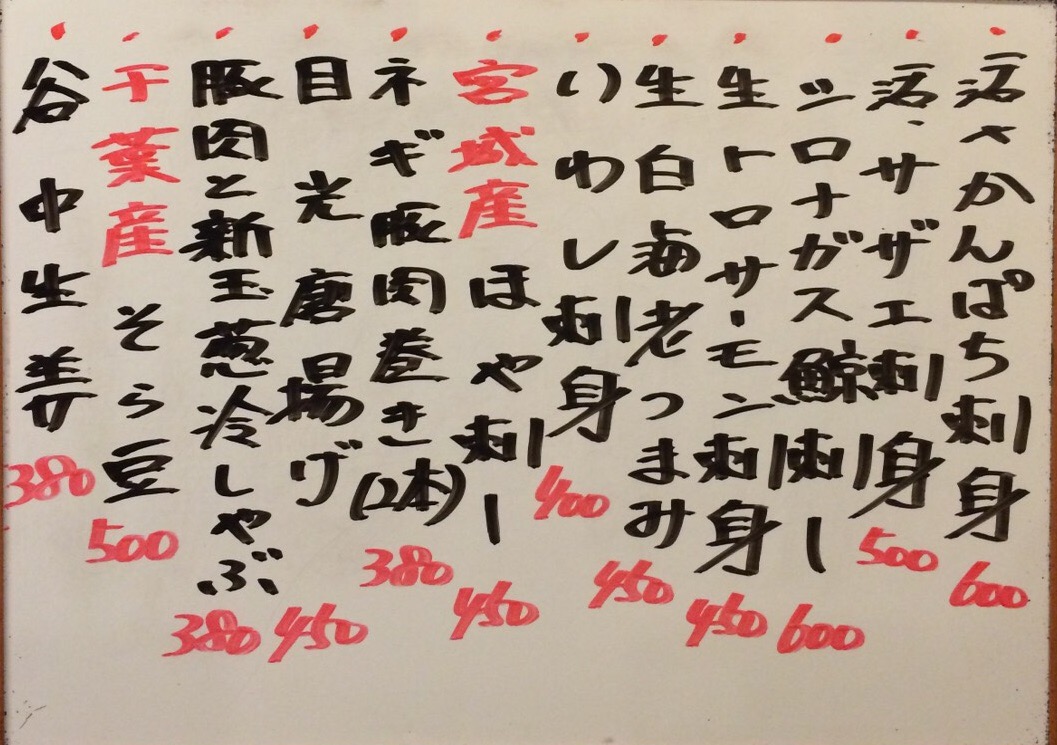 活〆かんぱち刺身 600
活、サザエ刺身 500
シロナガス鯨刺し 600
生トロサーモン刺身 450
生白海老つまみ 450
いわし刺身 400
宮城産ほや刺し 450
ネギ豚肉巻き(2本) 380
目光唐揚げ 450
豚肉と新玉葱冷しゃぶ 380
千葉産そら豆 500
谷中生姜 380